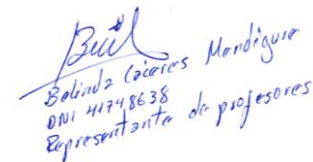 Belinda Cáceres Mendigure
DNI 41748638
Representante de profesores